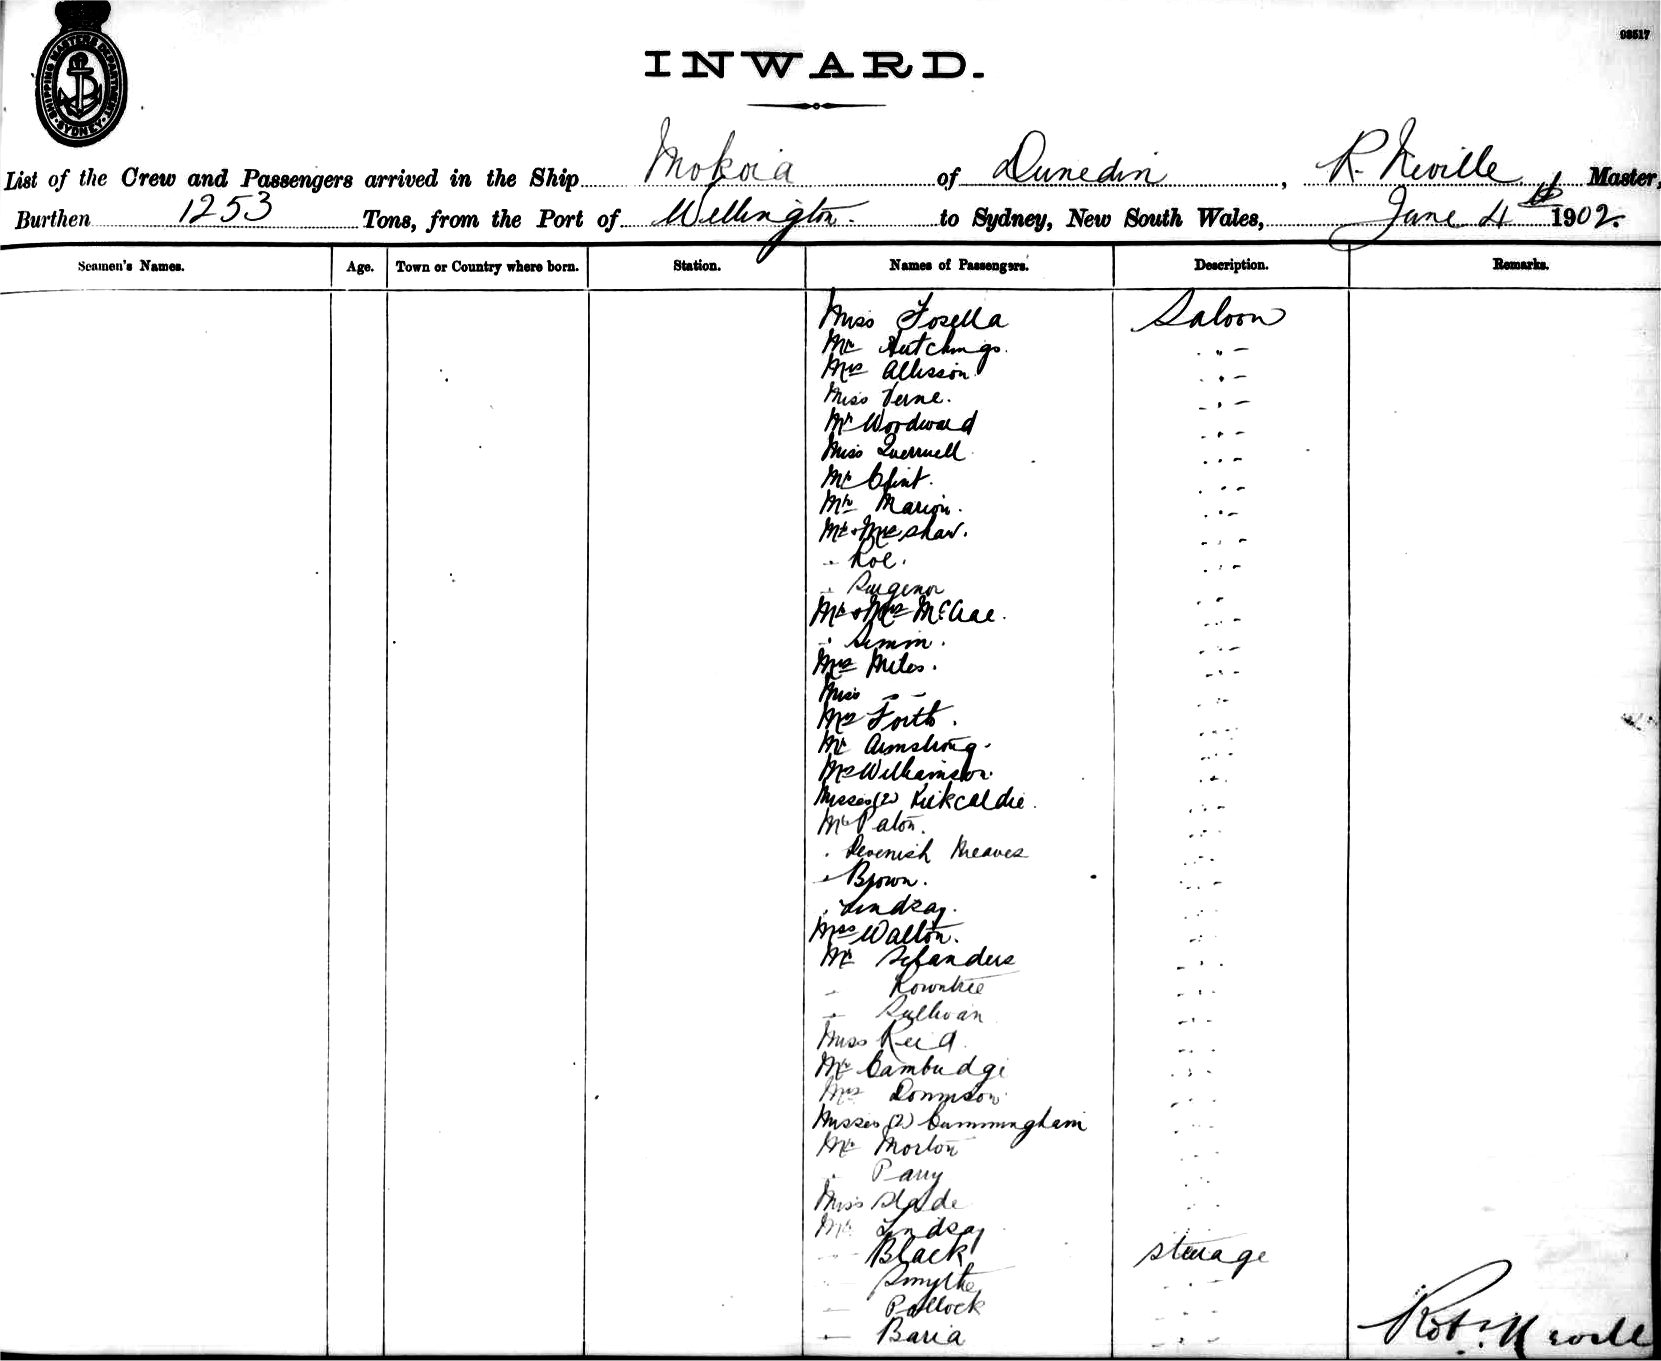 SHIPPING MASTERS DEPARTMENT SYDNEY
INWARD.
List of the Crew and Passengers arrived in the Ship Mokoia of Dunedin, R. Neville Master,
Burthen 1253 Tons, from the Port of Wellington. to Sydney, New South Wales, June 4th 1902.
Seamen's Names. Age. Town or Country where born. Station. Names of Passengers. Description. Remarks.
Miss Fosella Saloon
Mr Hutchings. " -
Mrs Allisson. " -
Miss Verne. " -
Mr Woodward " -
Miss " -
Mr Clint. " -
Mr Marion. " -
Mr & Mrs Shaw. " -
" Roe. " -
" Surgenor " -
Mr & Mrs McCrae. " -
" Simon. " -
Mrs Miles. " -
Miss " - " -
Mrs Forth. " -
Mr Armstrong. " -
Mrs Williamson. " -
Misses (2) Kirkcaldie. " -
Mr Paton. " -
" Devenish Meares " -
" Brown. " -
" Lindsay. " -
Mrs Walton. " -
Mr Sefanders " -
" Rowntree " -
" Sullivan " -
Miss Reid. " -
Mr Cambridge " -
Mrs Donnison " -
Misses (2) Cunningham " -
Mr Morton " -
" Parry " -
Miss Slade " -
Mr Lindsay " -
" Black Steerage
" Smythe " -
" Pollock " -
" Baria " -
Robt. Neville